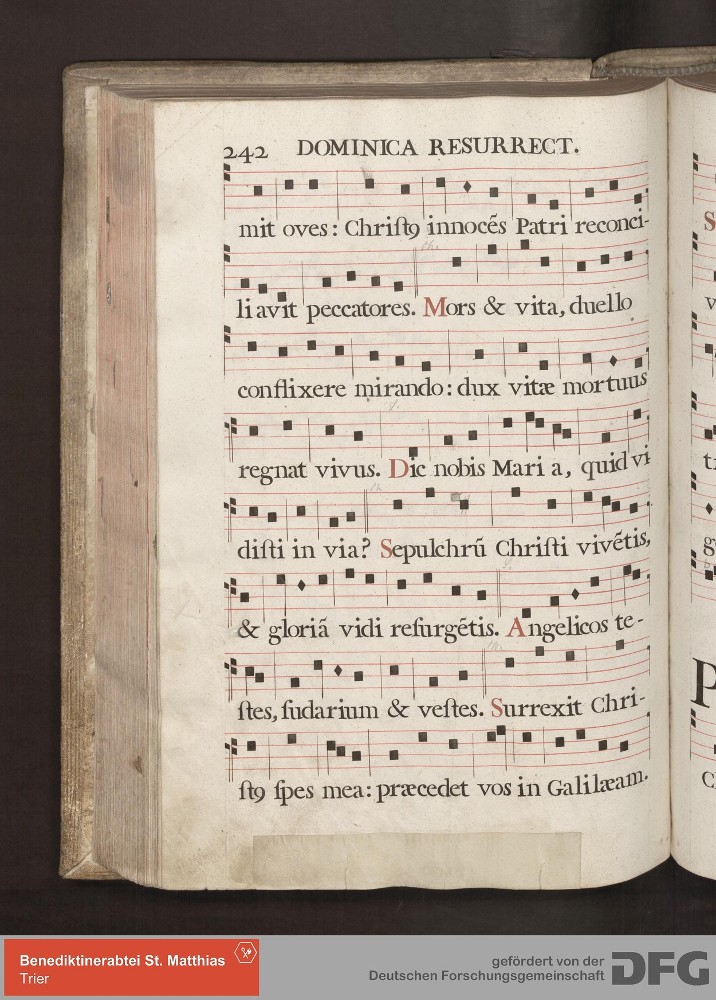 242 DOMINICA RESURRECT.
mit oves: Chriſtꝯ innocẽs Patri reconci-
liavit peccatores. Mors & vita, duello
conflixere mirando: dux vitæ mortuus
regnat vivus. Dic nobis Maria, quid vi
diſti in via? Sepulchrũ Chriſti vivẽtis,
& gloriã vidi reſurgẽtis. Angelicos te-
ſtes, ſudarium & veſtes. Surrexit Chri-
ſtꝯ ſpes mea: præcedet vos in Galilæam.
Benediktinerabtei St. Matthias
Trier
gefördert von der
Deutschen Forschungsgemeinschaft
DFG